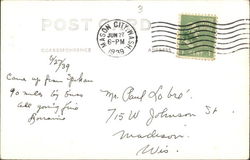 3
POST CARD
MASON CITY, WASH.
JUN 27
6-PM
1939
CORRESPONDENCE
ADDRESS
6/27/39
Came up from Spokane
90 miles by bus
All going fine
Mr. Paul
715 W Johnson St.
Madison,
Wis.